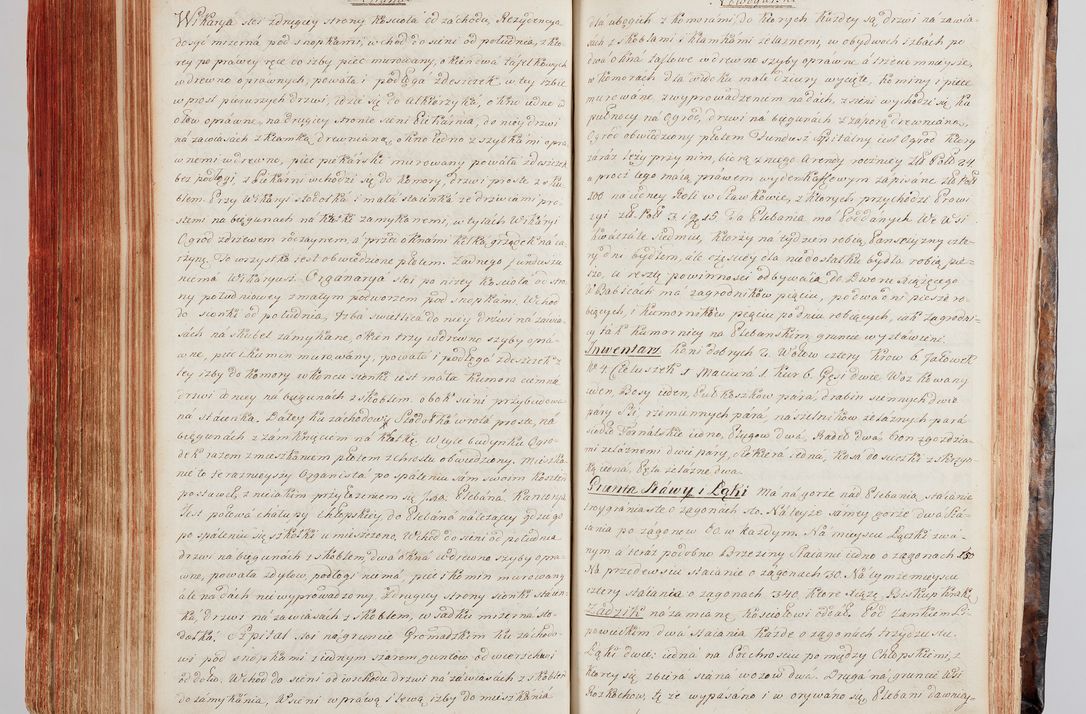 Wikarya stoi z drugiey strony Kosciołá od záchodu, Rezydencya
dosyć mizerna pod snopkámi, wchod do sieni od południá, z kto-
rey po prawey ręce do izby piec murowány, okien dwá taflkowych
w drewno oprawnych, powałá y podłogá zdesczek, w tey izbie
w prost pierwszych drzwi, idzie się do Alkierzyká, okno iedno w
ołow oprawne, ná drugiey stronie sieni Piekarnia, do niey drzwi
ná zawiásách z klamką drewnianą, okno iedno z szybkámi opra-
wnemi w drewne, piec piekárski murowany powałá zdesczek
bez podłogi, z Piekárni wchodzi się do Komory, drzwi proste z sko-
blem. Przy Wikaryi Stodołká i małá stáienká ze drzwiámi pro-
stemi ná begunách ná kołki zamykánemi, w tyłách Wikaryi
Ogrod z drzewem rodzaynem, á przed oknámi kilká grządek ná ia-
rzynę. To wszystko iest obwiedzione płotem. Żadnego funduszu
niemá Wikaryusz. Organarya stoi po niżey Kosciołá od stro-
ny południowey z małym podworzem pod snopkámi. Wchod
do sionki od południá, Izbá swietlica do niey drzwi ná zawia-
sách ná skobel zámykane, okien trzy w drewno szyby opra-
wne, piec i kumin murowány, powałá i podłogá zdesczek z
tey izby do Komory w końcu sionki iest máła Kumora ciemna
drzwi do niey ná begunách z skoblem. obok sieni przybudowa-
ná Stáienká. Dáley ku zachodowi Stodołká wrotá proste, ná
begunách z zámknięciem ná kłotkę. W tyle budynku Ogro-
dek rázem z mieszkániem płotem z chrostu obwiedziony. Mieszká-
nie to teraznieyszy Organistá po spáleniu sám swoim kosztem
postáwił, z nieiákim przyłożeniem się Jmć Plebáná. Kantorya
Jest połowá cháłupy Chłopskiey, do Plebáná náleżącey gdzie go
po spáleniu się szkołki umieszczono. Wchod do sieni od południá
drzwi ná begunách i skoblem, dwá okná w drewno szyby opra-
wne, powałá z dylow, podłogi niemá, piec i komin murowány
ale ná dách nie wyprowadzony. Z drugiey strony sionki stáien-
ká, drzwi ná zawiásách z skoblem, w sádku mizerná sto-
dołká. Szpitál stoi ná gruncie Gromadzkim ku zachodo-
wi pod snopkámi z iednym szárem guntow od wierzchu i
od dołu. Wchod do sieni od wschodu drzwi ná zawiásách z skoblem
do zámykániá, W sieni w práwą i lewą izby do mieszkániá
dla ubogich z komorámi do ktorych każdey są drzwi ná zawia-
sách z skoblámi i klamkámi żelaznemi, w obydwoch izbách po
dwá okná taflowe w drewno szyby oprawne á trzecie mnieysze,
w komorách dla widoku máłe dziury wycięte, kominy i piece
murowáne, z wyprowadzeniem ná dách, z sieni wychodzi się ku
pułnocy ná Ogrod, drzwi ná begunách z záporą drewnianą,
Ogrod obwiedziony płotem Fundusz Szpitálny iest Ogrod ktory
záraz leży przy nim, biorą z niego Arendy roczney Zł. Pol. 24
a procz tego maią práwem wyderkaffowym zapisáne Zł. Pol.
100 ná iedney Roli w Cławkowie, z ktorych przychodzi Prowi-
zyi Zł. Pol. 3 i g. 15. Zá Plebánia má Poddánych We Wsi
Kwáczále siedmiu, ktorzy ná tydzien robią Pánsczyzny czte-
ry dni bydłem, ále częściey dla niedostátku bydłá robią pie-
szo, á resztę powinności odbywáią do Dworu Xiążęcego
W Babicach má zagrodnikow pięciu, po dwa dni pieszo ro-
biących, i kumornikow pięciu po dniu robiących, ták Zagrodni-
cy ták Kumornicy na Plebańskim gruncie wystáwieni.
Inwentarz Koni dobrych 2. Wołow cztery Krow 6. Jałowek
No 4 Cieluszek 1. Maciora 1. Kur 6. Gęsi dwie Woz kowany
ieden, Bosy ieden, Pułkoszkow pára, drabin siennych dwie
pary. Szl rzemiennych pára, nászelnikow żelaznych pára
siodło Fornálskie iedno, Pługow dwá, Rádeł dwá, bron z gozdzia-
mi żelaznemi dwie pary, siekiera iedná, Kosá do sieczki z skrzyn-
ką iedná, Pętá żelazne dwa.
Grunta Niwy i Łąki Má ná gorze nad Plebánią, stáiánie
troygraniaste o zagonách sto. Ná teyże sámey gorze dwá Stá-
iania po zagonow 60. w każdym. Ná mieyscu Łąszki zwa-
nym á teraz podobno Brzeziny Stáianie iedno o zagonách 150
Ná przedewsiu stáianie o zágonách 30. Ná tymże mieyscu
cztery stáiania o zágonách 340. ktore Xiążę Biskup Krak.
Zádzik ná zamianę Kosciołowi oddał. Pod Zamkiem Li-
powieckim dwa Stáiania Każde o zágonach trzydziestu.
Łąki dwie: iedná ná Podchrosciu po między Chłopskiemi, z
ktorey się zbiera siana wozow dwá. Druga ná gruncie Wsi
Rozkochow, tę że wypasáno i w orywano się, Plebani dawniey-